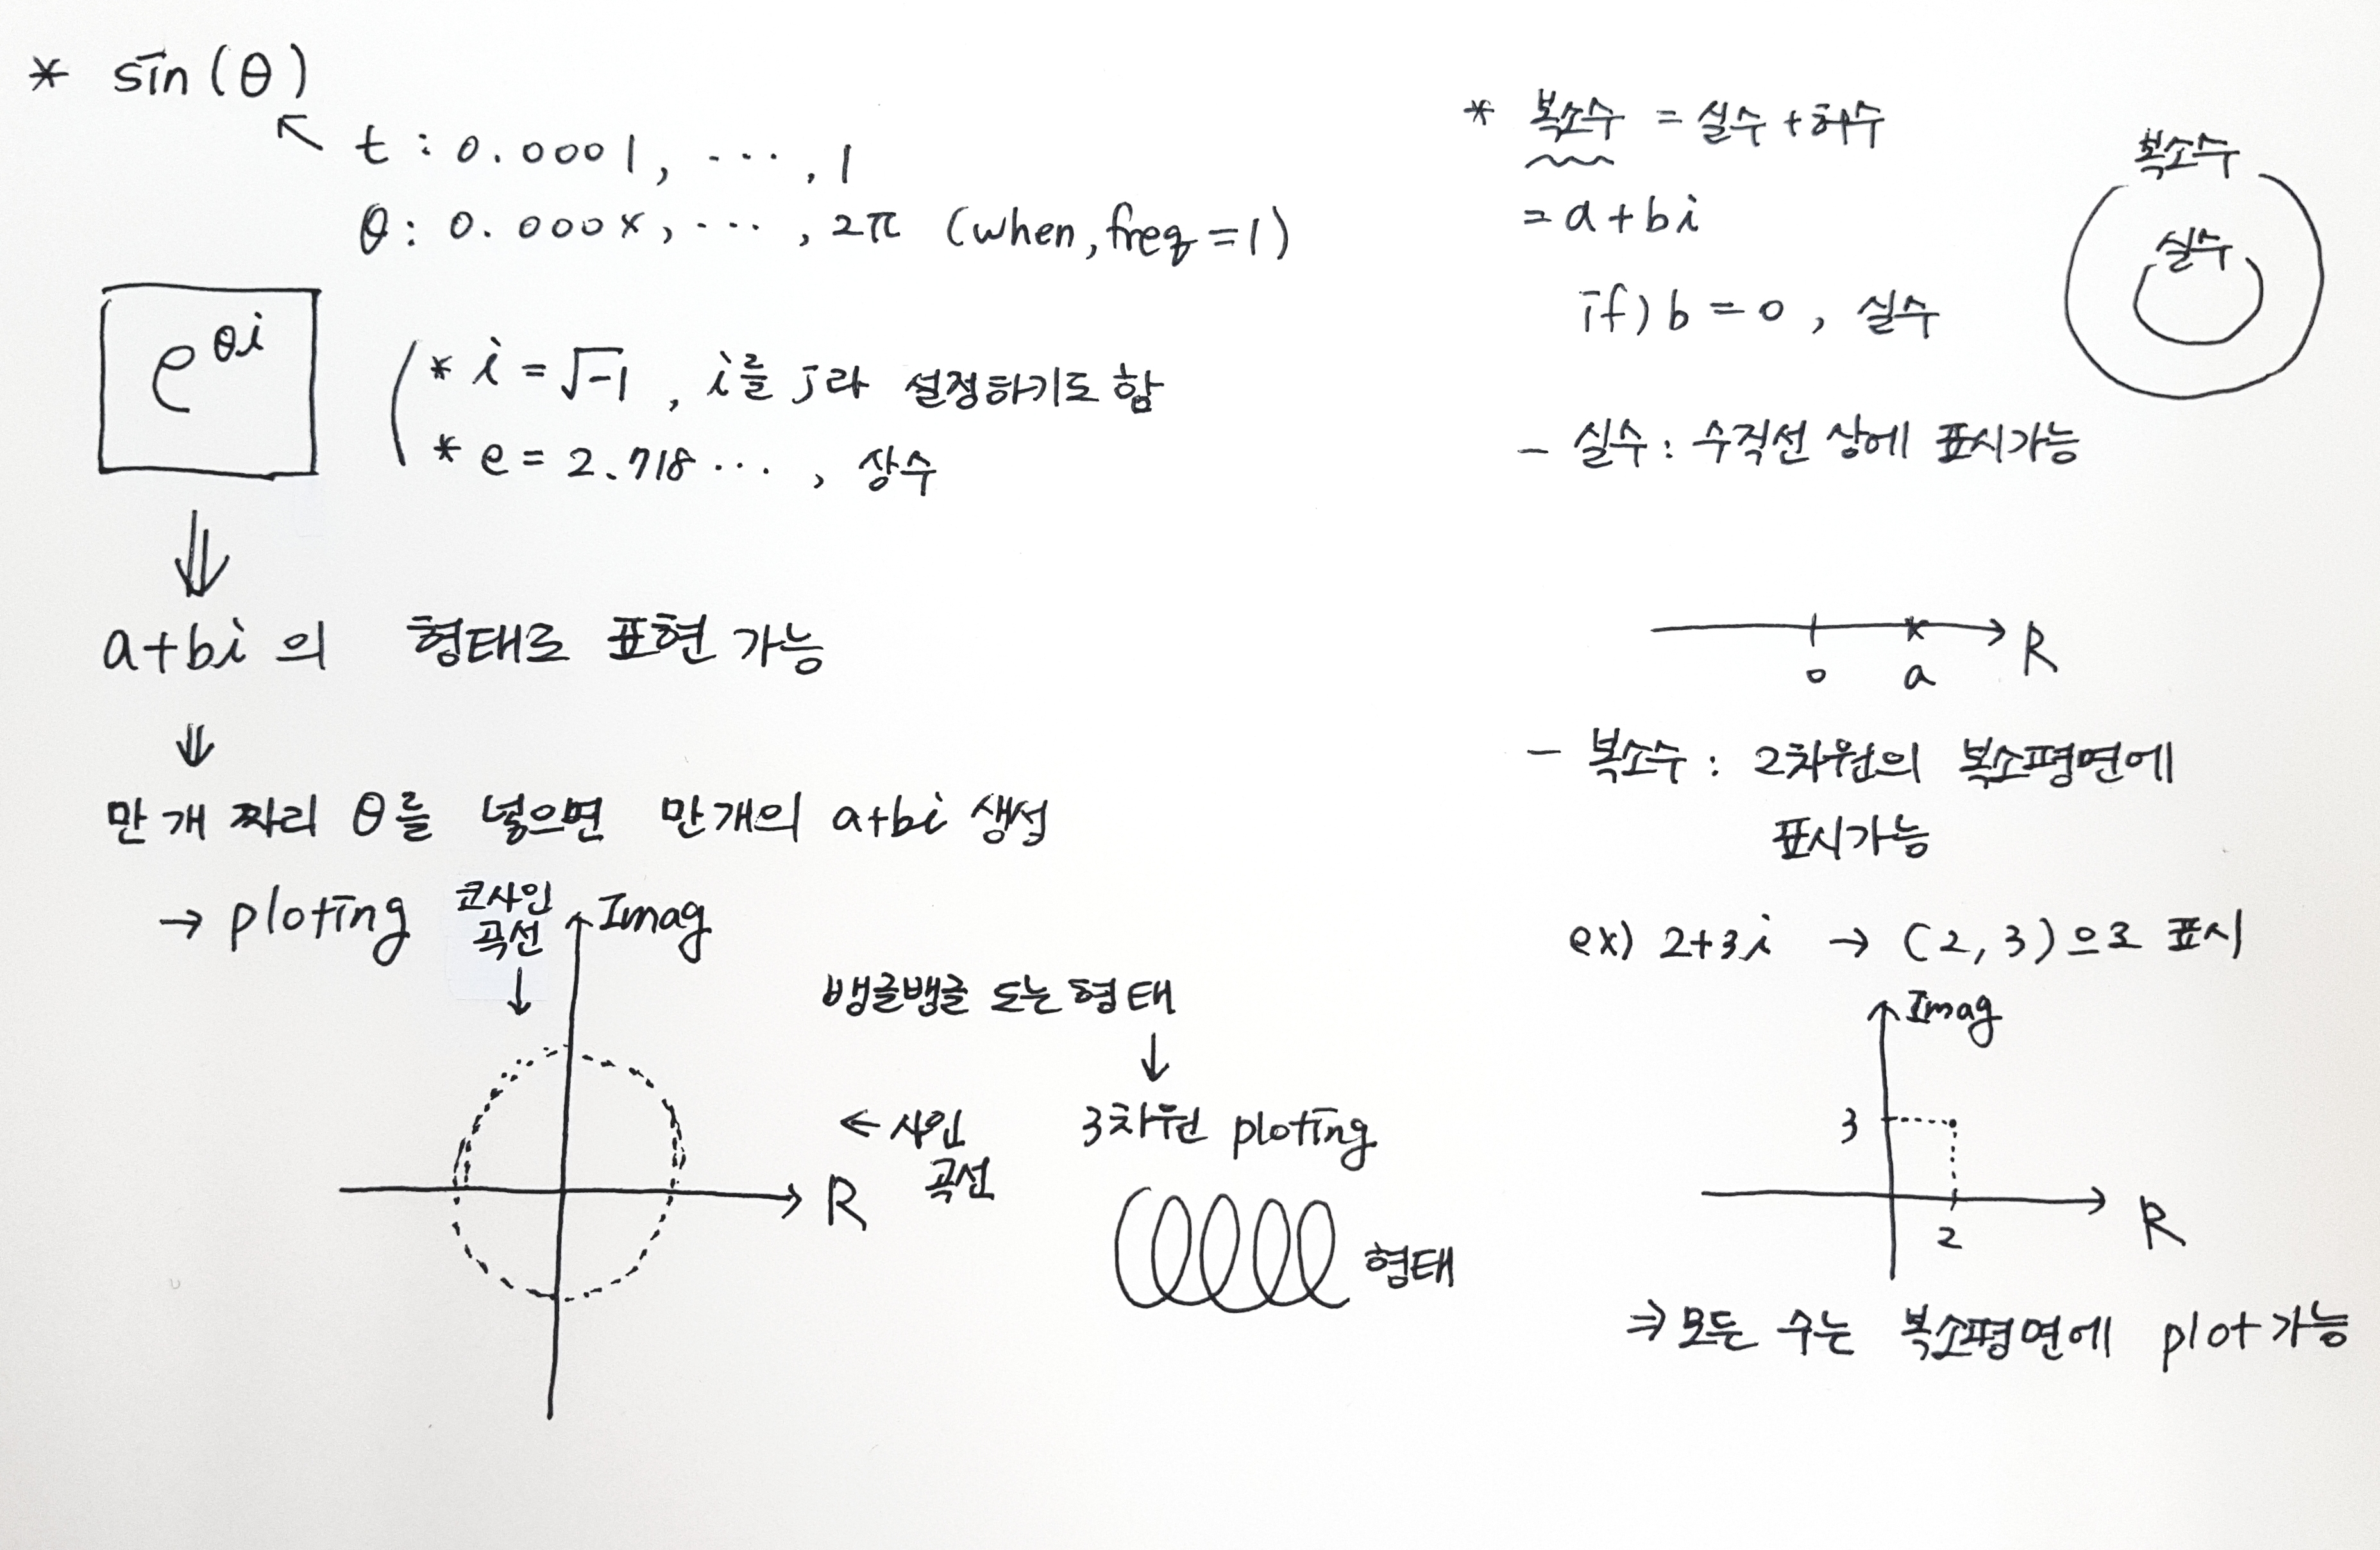 * sin(θ)
t : 0.0001, ..., 1
θ : 0.000x, ..., 2π (when, freq = 1)
e^θi
* i = √-1 , i를 j라 설정하기도 함
* e = 2.718... , 상수
a+bi 의 형태로 표현 가능
만개 짜리 θ를 넣으면 만개의 a+bi 생성
→ ploting
코사인
곡선
↓
Imag
R
← 사인
곡선
뱅글뱅글 도는 형태
↓
3차원 ploting
형태
* 복소수 = 실수 + 허수
= a + bi
if) b = 0 , 실수
복소수
실수
- 실수 : 수직선 상에 표시가능
0 a R
- 복소수 : 2차원의 복소평면에
표시가능
ex) 2+3i → (2, 3)으로 표시
Imag
3
2
R
⇒ 모든 수는 복소평면에 plot 가능